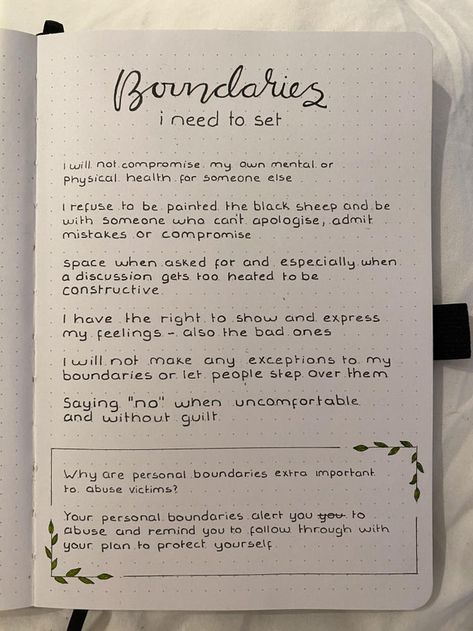 Boundaries
i need to set
i will not compromise my own mental or
physical health for someone else
I refuse to be painted the black sheep and be
with someone who can't apologise, admit
mistakes or compromise
space when asked for and especially when
a discussion gets too heated to be
constructive.
I have the right to show and express
my feelings - also the bad ones
I will not make any exceptions to my
boundaries or let people step over them
Saying "no" when uncomfortable
and without guilt.
Why are personal boundaries extra important
to abuse victims?
Your personal boundaries alert you you to
abuse and remind you to follow through with
your plan to protect yourself.